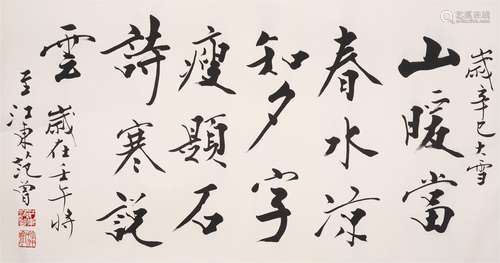 歲辛巳大雪
山暖當
春水涼
知夕字
瘦題石
詩寒說
雲
歲在壬午將
至江東范曾